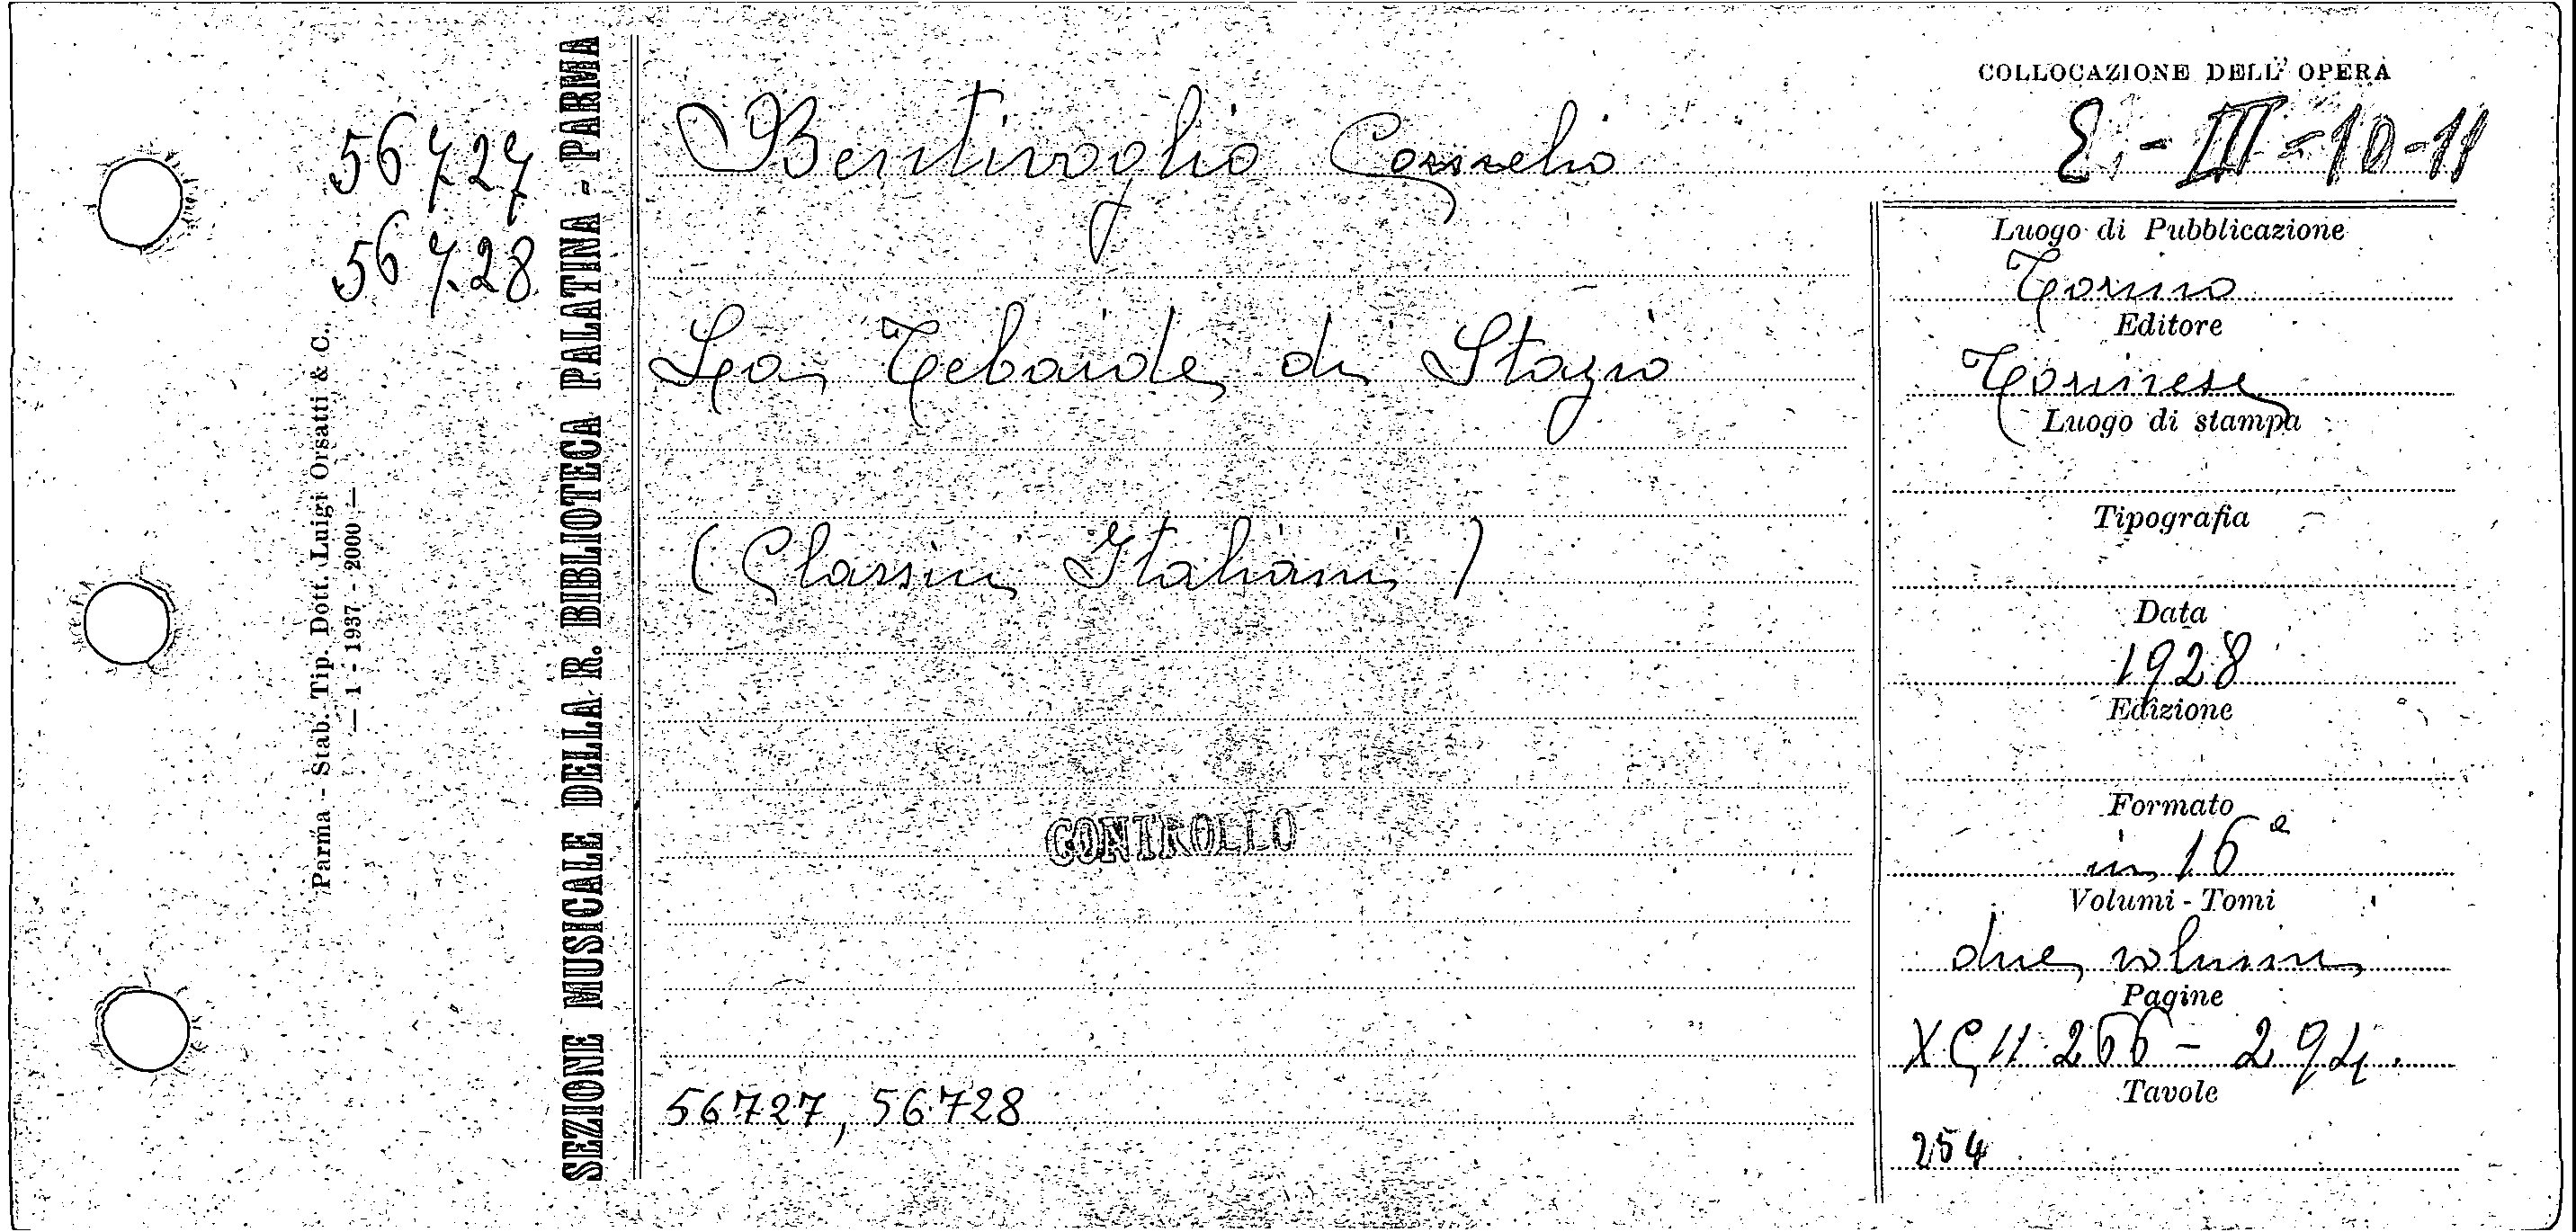 56727
56728
Parma - Stab. Tip. Dott. Luigi Orsatti & C.
— 1 - 1937 - 2000 —
SEZIONE MUSICALE DELLA R. BIBLIOTECA PALATINA - PARMA
Bentivoglio Cornelio
La Tebaide di Stazio
(Classici Italiani)
CONTROLLO
56727, 56728
COLLOCAZIONE DELL' OPERA
E.-III-10-11
Luogo di Pubblicazione
Torino
Editore
Torinese
Luogo di stampa
Tipografia
Data
1928
Edizione
Formato
in 16°
Volumi - Tomi
due volumi
Pagine
XCII 266 - 294.
Tavole
254